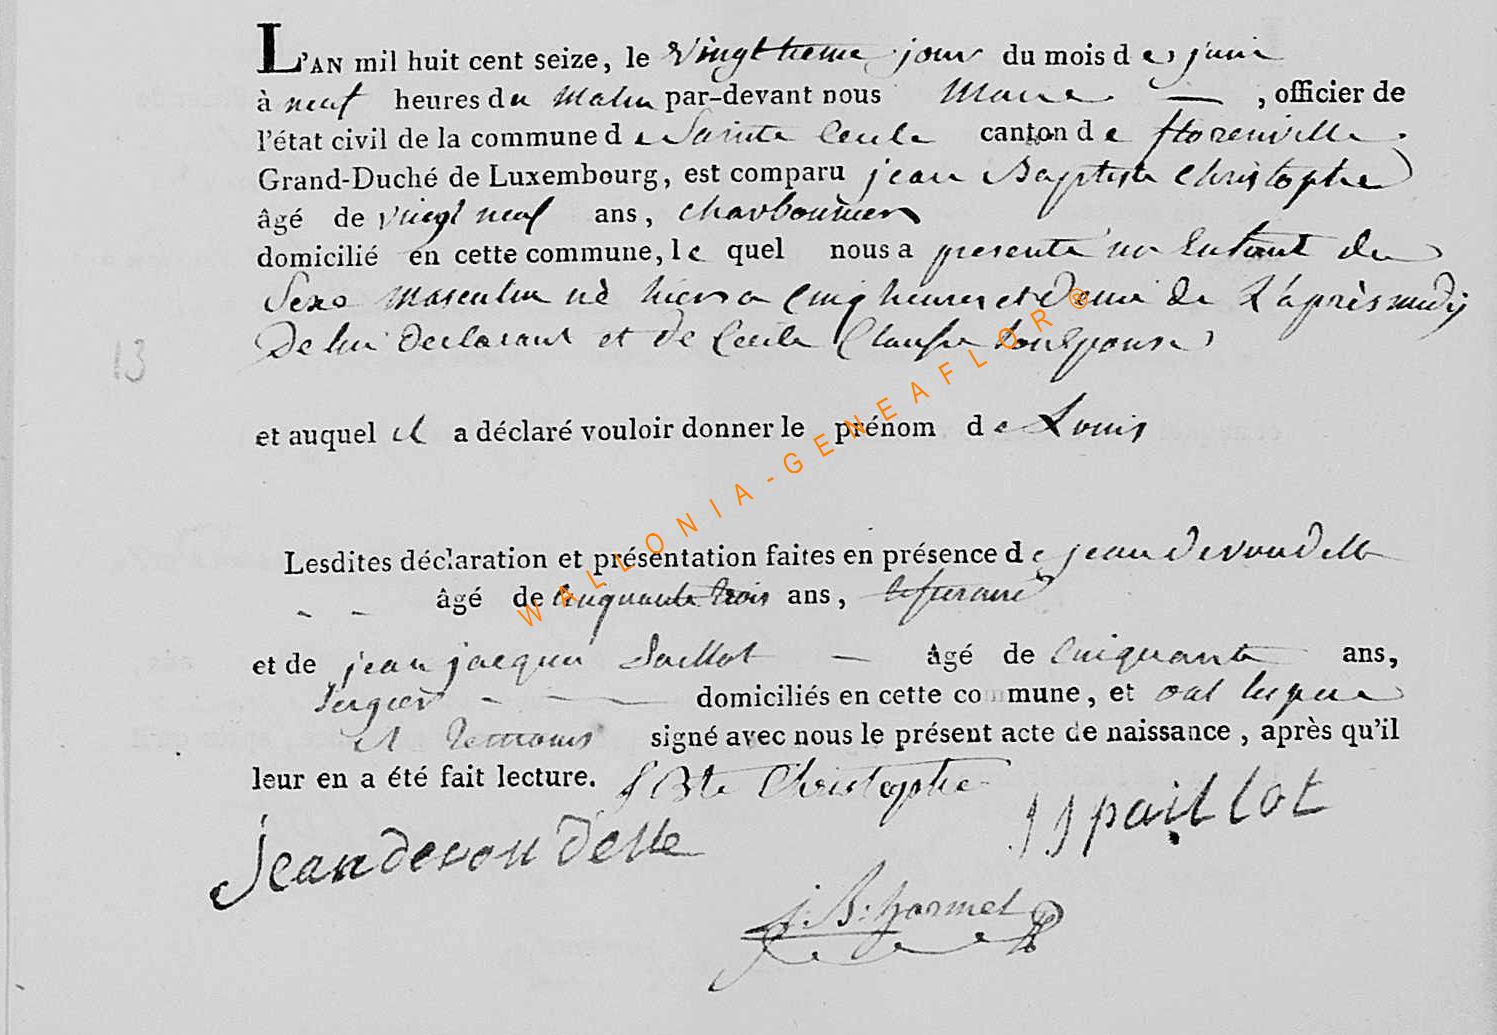 L'AN mil huit cent seize, le vingtieme jour du mois de juin
à neuf heures du Matin par-devant nous Maire — , officier de
l'état civil de la commune de Sainte Cecile canton de florenville.
Grand-Duché de Luxembourg, est comparu jean Baptiste Christophe
âgé de vingt neuf ans, charbonnier
domicilié en cette commune, le quel nous a presenté un Enfant du
Sexe Masculin né hier a cinq heures et Demi de L'après midy
De lui declarant et de Cecile son Epouse
13
et auquel il a déclaré vouloir donner le prénom de Louis
Lesdites déclaration et présentation faites en présence de jean devondelle
âgé de Cinquante trois ans,
et de jean jacques Paillot — âgé de Cinquante ans,
domiciliés en cette commune, et ont les pere
et temoins signé avec nous le présent acte de naissance, après qu'il
leur en a été fait lecture. J Bte Christophe
jean devondelle
JJ paillot
J: B: hormel
WALLONIA-GENEAFLOR®